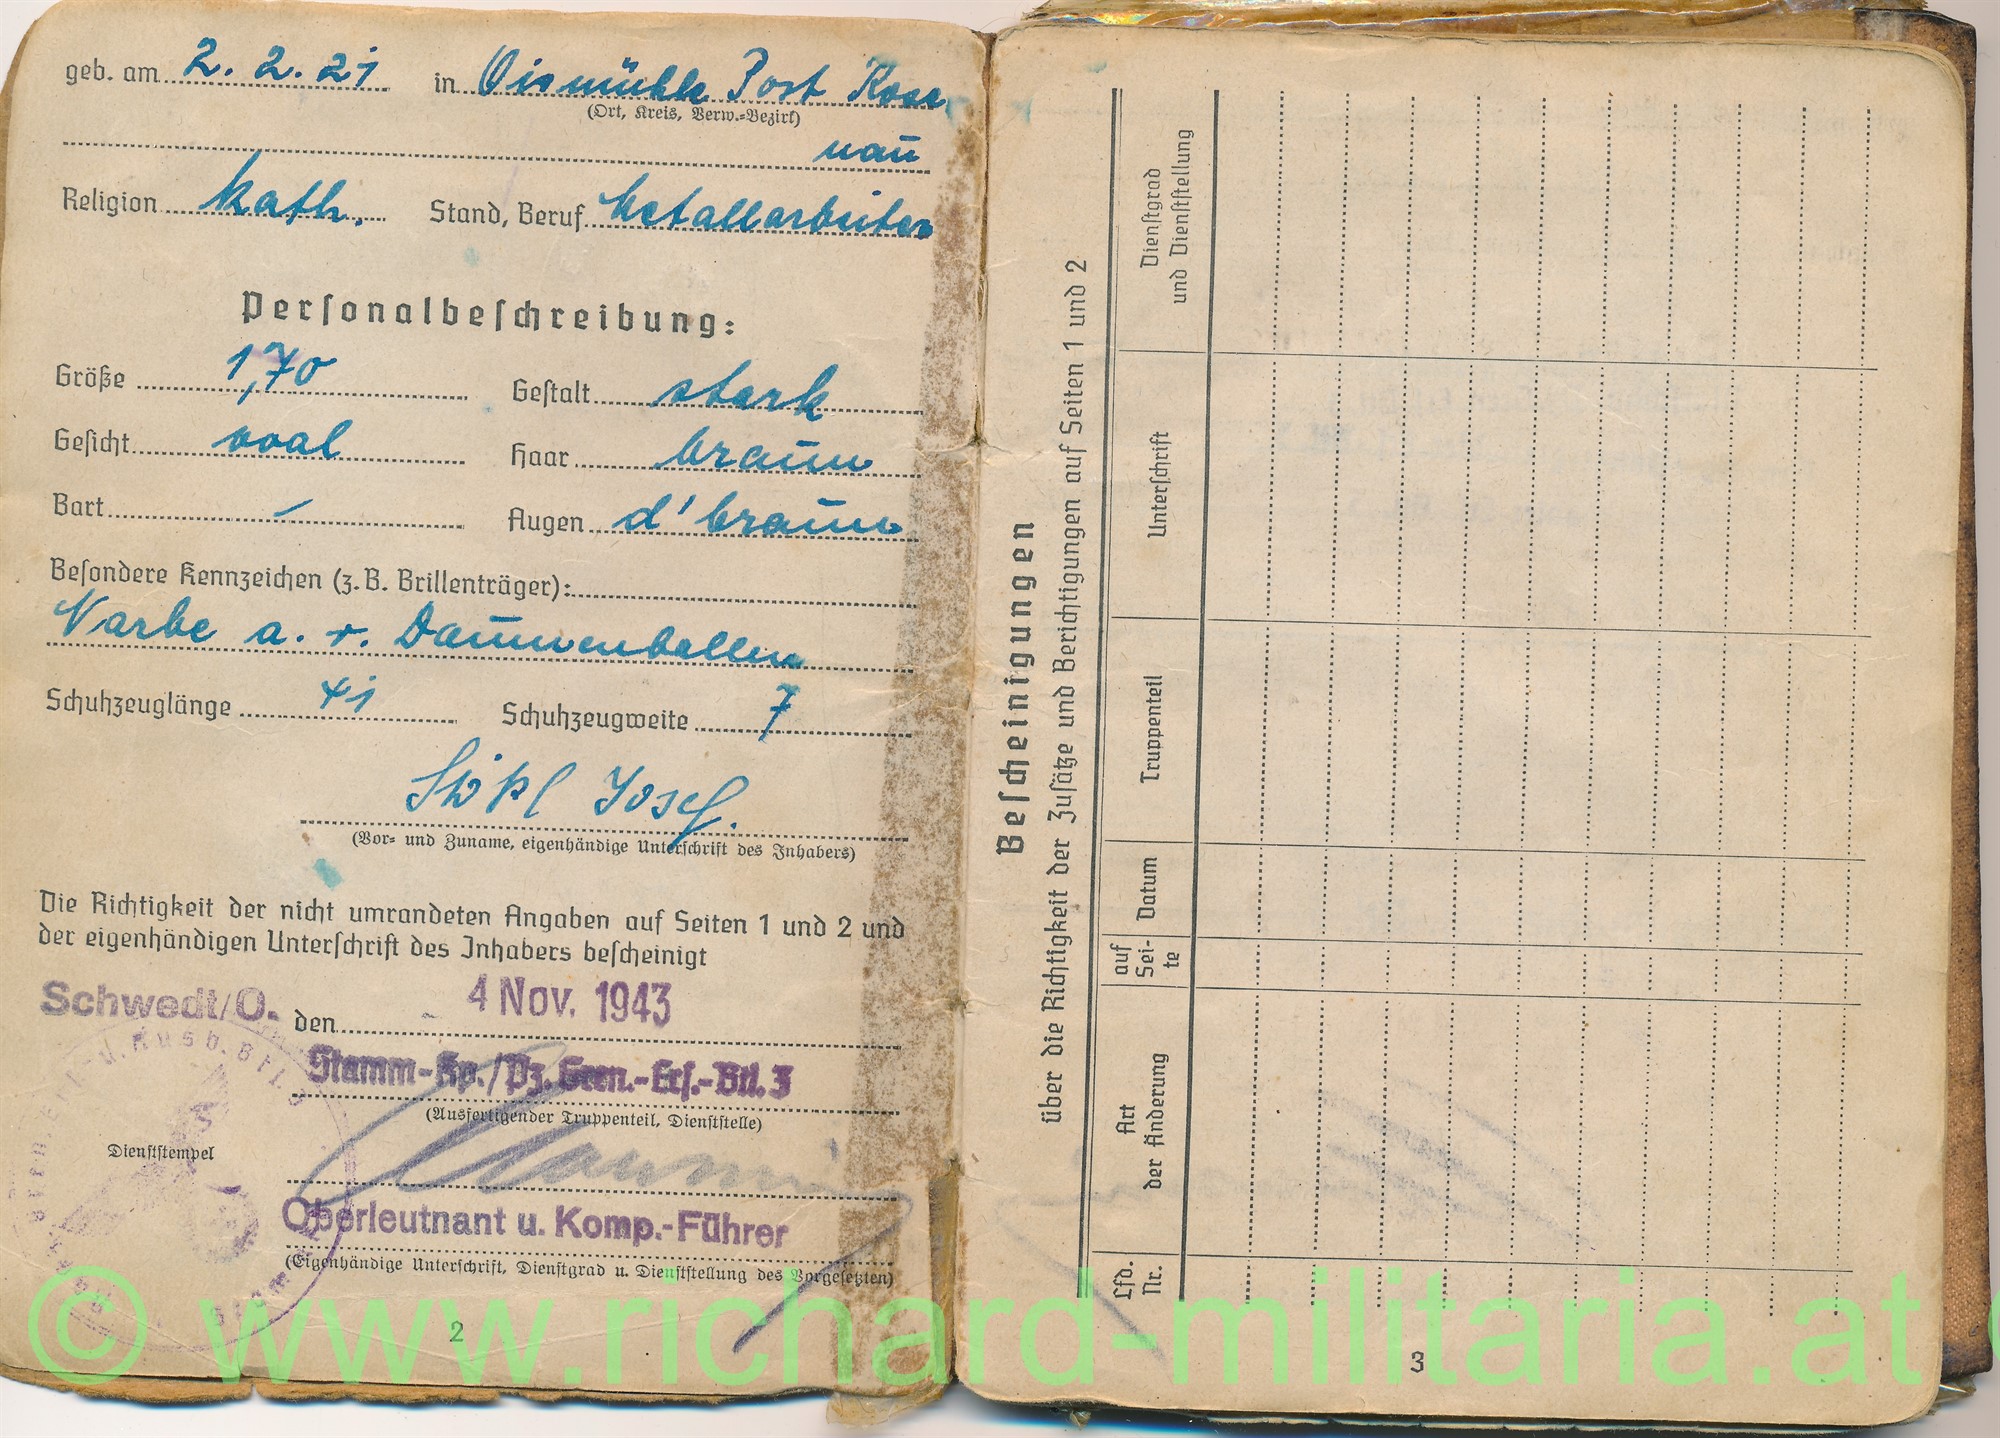 geb. am 2. 2. 21 in Post Rose
(Ort, Kreis, Verw.=Bezirk)
nau
Religion kath. Stand, Beruf Metallarbeiter
Personalbeschreibung:
Größe 1,70 Gestalt stark
Gesicht oval Haar braun
Bart – Augen d'braun
Besondere Kennzeichen (z. B. Brillenträger):
Narbe a. r. Daumenballen
Schuhzeuglänge 41 Schuhzeugweite 7
Josef.
(Vor= und Zuname, eigenhändige Unterschrift des Inhabers)
Die Richtigkeit der nicht umrandeten Angaben auf Seiten 1 und 2 und
der eigenhändigen Unterschrift des Inhabers bescheinigt
Schwedt/O. den 4 Nov. 1943
u. Ausb. Btl. 3
Stamm-Kp./Pz. Gren.-Ers.-Btl. 3
(Ausfertigender Truppenteil, Dienststelle)
Dienststempel
Oberleutnant u. Komp.-Führer
(Eigenhändige Unterschrift, Dienstgrad u. Dienststellung des Vorgesetzten)
2
Bescheinigungen
über die Richtigkeit der Zusätze und Berichtigungen auf Seiten 1 und 2
Lfd. Nr.
Art der Änderung
auf Sei-te
Datum
Truppenteil
Unterschrift
Dienstgrad und Dienststellung
3
© www.richard-militaria.at ©